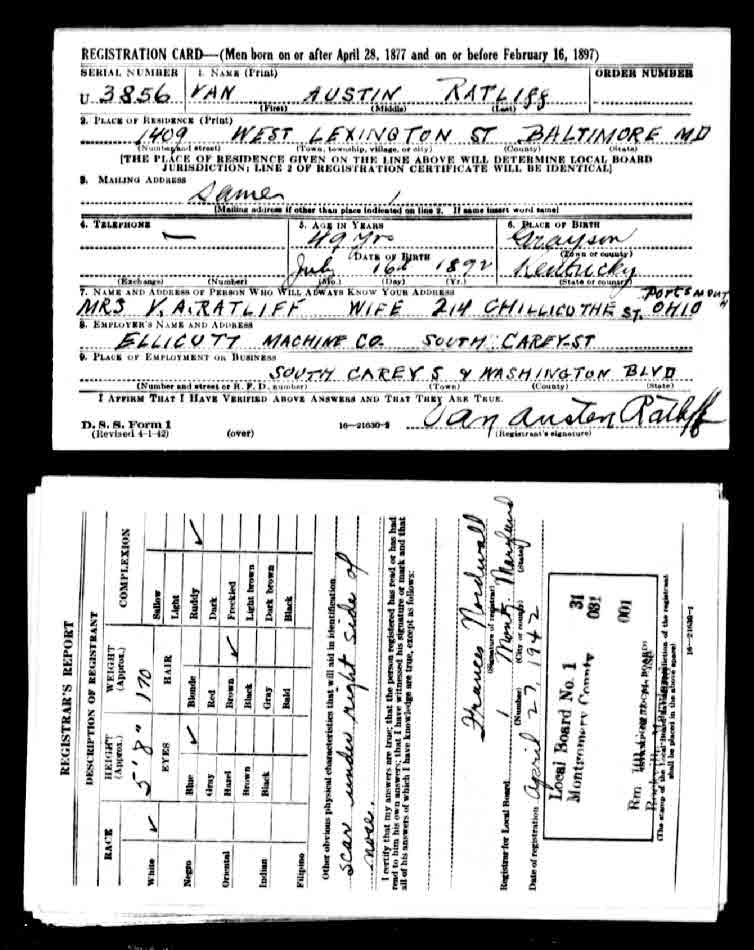 REGISTRATION CARD—(Men born on or after April 28, 1877 and on or before February 16, 1897)
SERIAL NUMBER 1. NAME (Print) ORDER NUMBER
U 3856 VAN AUSTIN RATLIFF
(First) (Middle) (Last)
2. PLACE OF RESIDENCE (Print)
1409 WEST LEXINGTON ST BALTIMORE MD
(Number and street) (Town, township, village, or city) (County) (State)
[THE PLACE OF RESIDENCE GIVEN ON THE LINE ABOVE WILL DETERMINE LOCAL BOARD
JURISDICTION; LINE 2 OF REGISTRATION CERTIFICATE WILL BE IDENTICAL]
3. MAILING ADDRESS
Same
[Mailing address if other than place indicated on line 2. If same insert word same]
4. TELEPHONE 5. AGE IN YEARS 6. PLACE OF BIRTH
— 49 yrs Grayson
DATE OF BIRTH (Town or county)
July 16th 1892 Kentucky
(Exchange) (Number) (Mo.) (Day) (Yr.) (State or country)
7. NAME AND ADDRESS OF PERSON WHO WILL ALWAYS KNOW YOUR ADDRESS PORTSMOUTH
MRS V. A. RATLIFF WIFE 214 CHILLICOTHE ST. OHIO
8. EMPLOYER'S NAME AND ADDRESS
ELLICUTT MACHINE CO. SOUTH CAREY ST
9. PLACE OF EMPLOYMENT OR BUSINESS
SOUTH CAREY S & WASHINGTON BLVD
(Number and street or R. F. D. number) (Town) (County) (State)
I AFFIRM THAT I HAVE VERIFIED ABOVE ANSWERS AND THAT THEY ARE TRUE.
D. S. S. Form 1 Van Austen Ratliff
(Revised 4-1-42) (over) 16—21630-2 (Registrant's signature)
REGISTRAR'S REPORT
DESCRIPTION OF REGISTRANT
RACE HEIGHT (Approx.) WEIGHT (Approx.) COMPLEXION
5' 8" 170
EYES HAIR
White ✓ Blue ✓ Blonde Sallow
Light
Negro Gray Red Ruddy ✓
Dark
Oriental Hazel Brown ✓ Freckled
Brown Black Light brown
Indian Black Gray Dark brown
Filipino Bald Black
Other obvious physical characteristics that will aid in identification
scar under right side of
nose.
I certify that my answers are true; that the person registered has read or has had
read to him his own answers; that I have witnessed his signature or mark and that
all of his answers of which I have knowledge are true, except as follows:
Frances Nordwall
(Signature of registrar)
Registrar for Local Board 1 Montg. Maryland
(Number) (City or county) (State)
Date of registration April 27, 1942
Local Board No. 1 31
Montgomery County 031
001
(The stamp of the Local Board having jurisdiction of the registrant
shall be placed in the above space)
16—21630-1